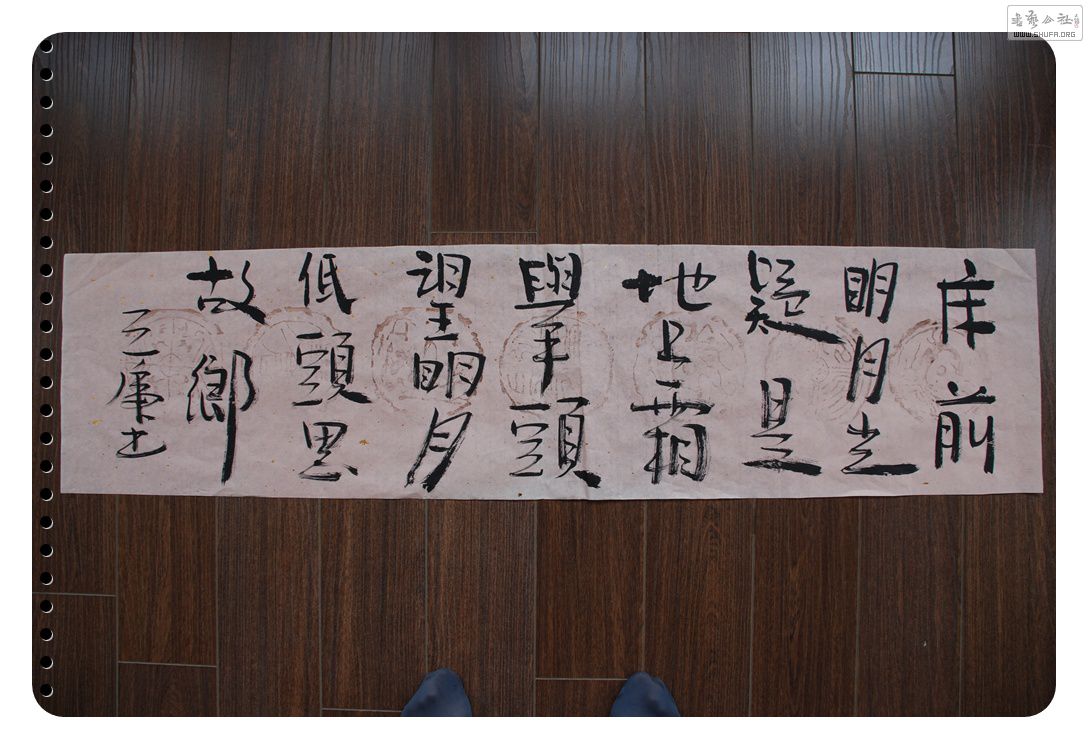 床前
明月光
疑是
地上霜
舉頭
望明月
低頭思
故鄉
書藝公社
WWW.SHUFA.ORG